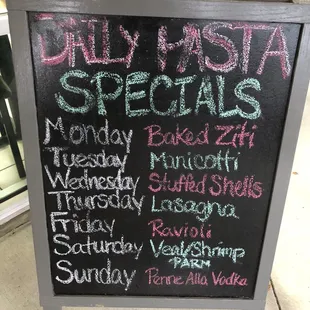 DAILY PASTA
SPECIALS
Monday Baked Ziti
Tuesday Manicotti
Wednesday Stuffed Shells
Thursday Lasagna
Friday Ravioli
Saturday Veal/Shrimp
PARM
Sunday Penne Alla Vodka